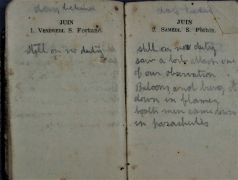 days behind
JUIN
1. VENDREDI. S. Fortuné.
still on no duty
JUIN
2. SAMEDI. S. Pothin.
still on no duty
saw a
of our observation
Baloons and bring it
down in flames
both men came down
in parachutes